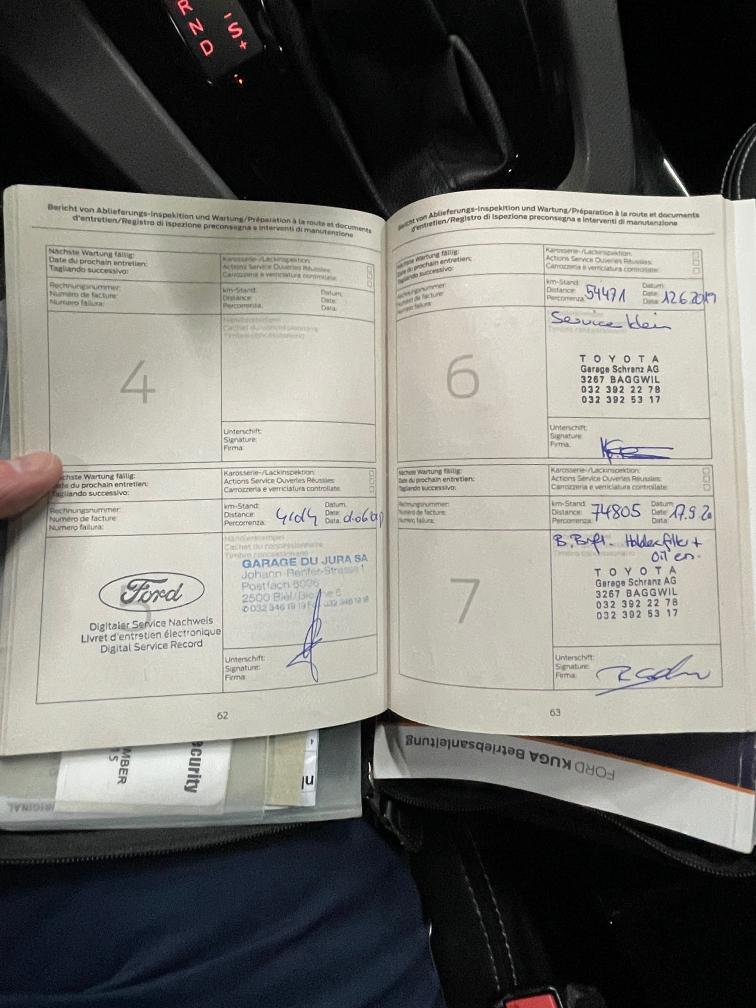 R N D
S +
Bericht von Ablieferungs-Inspektion und Wartung/Préparation à la route et documents
d'entretien/Registro di ispezione preconsegna e interventi di manutenzione
Nächste Wartung fällig:
Date du prochain entretien:
Tagliando successivo:
Karosserie-/Lackinspektion:
Actions Service Ouveries Réussies:
Carrozzeria e verniciatura controllate:
Rechnungsnummer:
Numéro de facture:
Numero fattura:
km-Stand:
Distance:
Percorrenza:
Datum:
Date:
Data:
4
Unterschrift:
Signature:
Firma:
Nächste Wartung fällig:
Date du prochain entretien:
Tagliando successivo:
Karosserie-/Lackinspektion:
Actions Service Ouveries Réussies:
Carrozzeria e verniciatura controllate:
Rechnungsnummer:
Numéro de facture:
Numero fattura:
km-Stand:
Distance:
Percorrenza:
Datum:
Date:
Data:
5
Ford
Digitaler Service Nachweis
Livret d'entretien électronique
Digital Service Record
GARAGE DU JURA SA
Johann-Renfer-Strasse 1
Postfach 6026
2500 Biel/Bienne 6
Unterschrift:
Signature:
Firma:
62
Bericht von Ablieferungs-Inspektion und Wartung/Préparation à la route et documents
d'entretien/Registro di ispezione preconsegna e interventi di manutenzione
Wartung fällig:
Date du prochain entretien:
Tagliando successivo:
Karosserie-/Lackinspektion:
Actions Service Ouveries Réussies:
Carrozzeria e verniciatura controllate:
Rechnungsnummer:
Numéro de facture:
Numero fattura:
km-Stand:
Distance:
Percorrenza:
54471
Datum:
Date:
Data:
12.6.2019
6
Service klein
TOYOTA
Garage Schranz AG
3267 BAGGWIL
032 392 22 78
032 392 53 17
Unterschrift:
Signature:
Firma:
Nächste Wartung fällig:
Date du prochain entretien:
Tagliando successivo:
Karosserie-/Lackinspektion:
Actions Service Ouveries Réussies:
Carrozzeria e verniciatura controllate:
Rechnungsnummer:
Numéro de facture:
Numero fattura:
km-Stand:
Distance:
Percorrenza:
74805
Datum:
Date:
Data:
17.9.20
7
TOYOTA
Garage Schranz AG
3267 BAGGWIL
032 392 22 78
032 392 53 17
Unterschrift:
Signature:
Firma:
63
FORD KUGA Betriebsanleitung
ORIGINAL